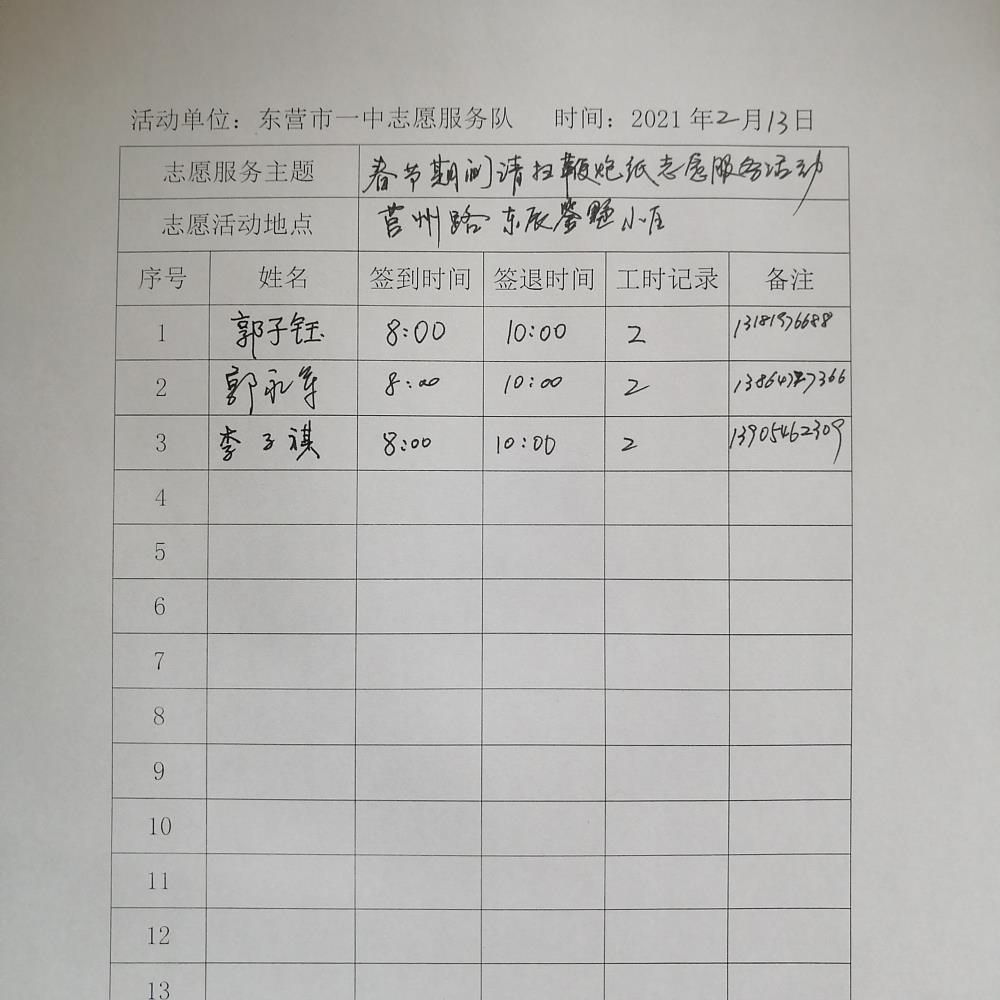 活动单位：东营市一中志愿服务队 时间：2021年2月13日
志愿服务主题 春节期间清扫鞭炮纸志愿服务活动
志愿活动地点 莒州路东辰 小区
序号 姓名 签到时间 签退时间 工时记录 备注
1 郭子钰 8:00 10:00 2 13181976688
2 郭永军 8:00 10:00 2
3 李子祺 8:00 10:00 2 13905462309
4
5
6
7
8
9
10
11
12
13